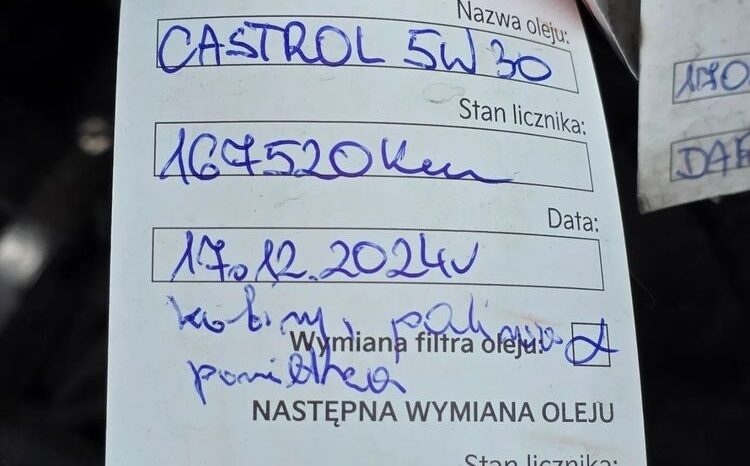 Nazwa oleju:
CASTROL 5W30
Stan licznika:
167520 km
Data:
17.12.2024r
kabiny, paliwa
Wymiana filtra oleju:
powietrza
NASTĘPNA WYMIANA OLEJU
Stan licznika:
170